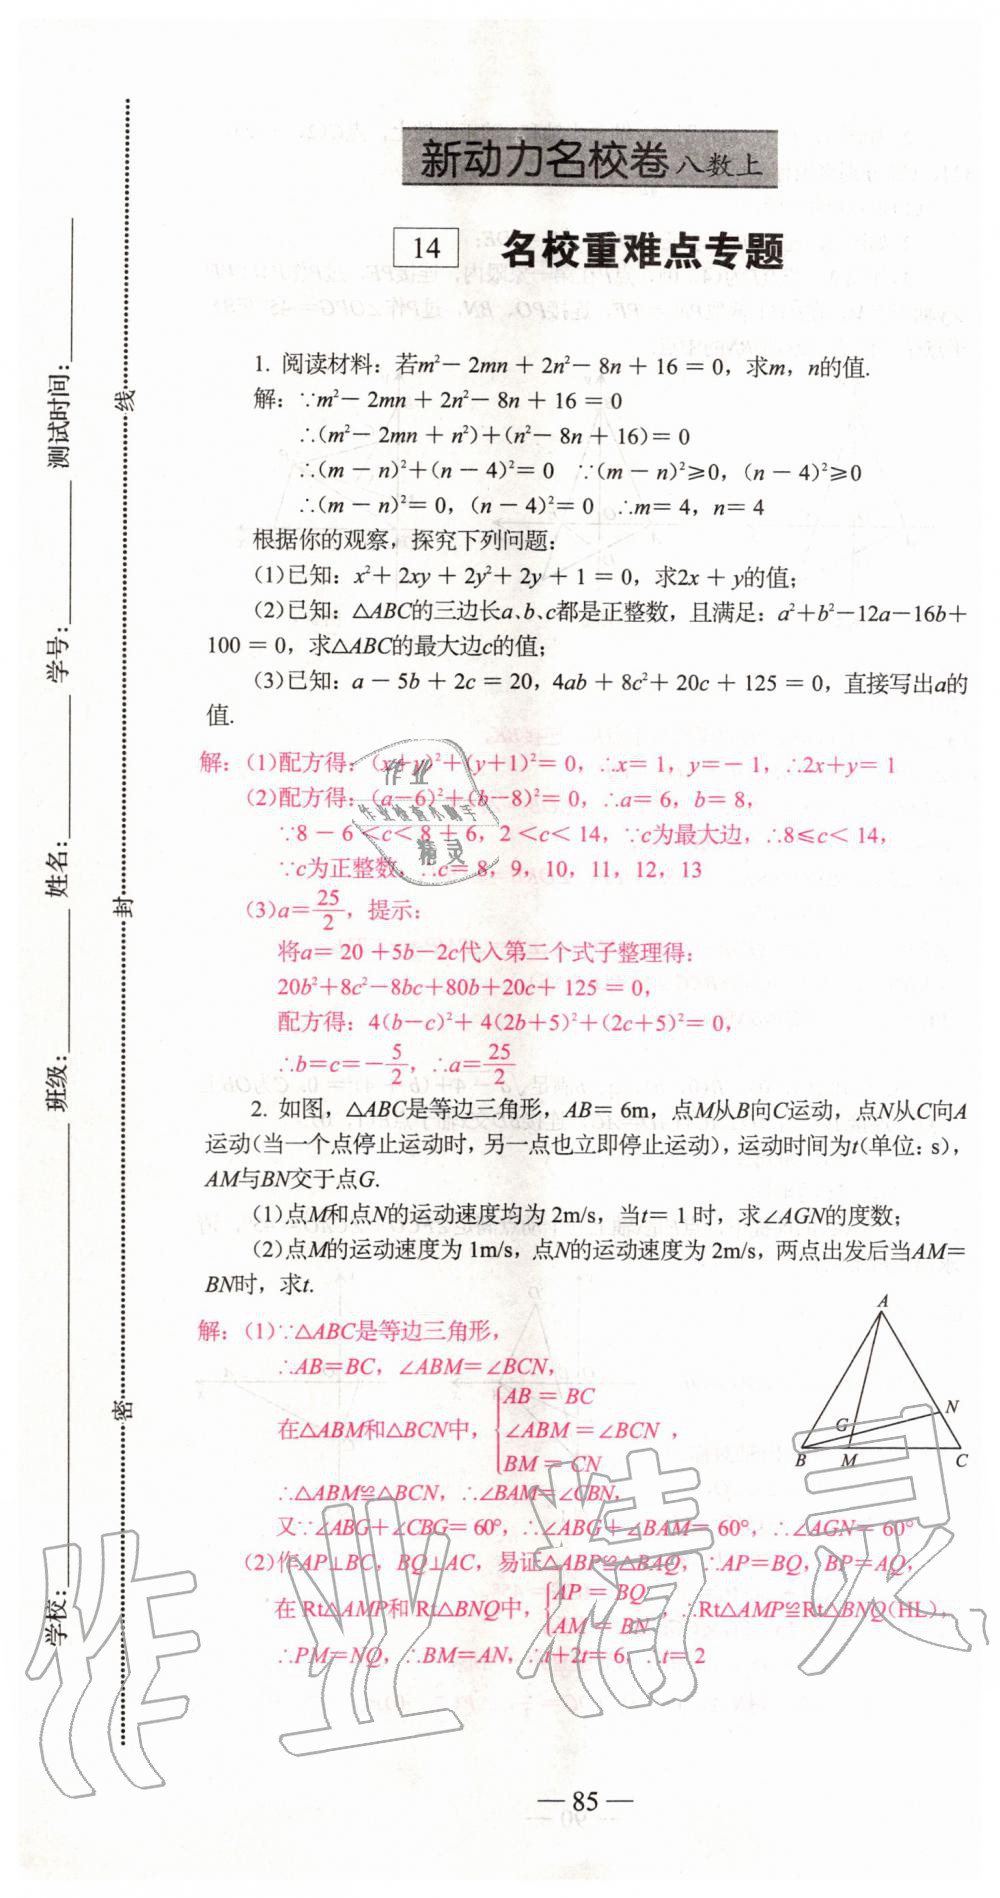 新动力名校卷 八数上
14 名校重难点专题
1. 阅读材料：若m²－2mn＋2n²－8n＋16＝0，求m，n的值.
解：∵m²－2mn＋2n²－8n＋16＝0
∴(m²－2mn＋n²)＋(n²－8n＋16)＝0
∴(m－n)²＋(n－4)²＝0 ∵(m－n)²≥0，(n－4)²≥0
∴(m－n)²＝0，(n－4)²＝0 ∴m＝4，n＝4
根据你的观察，探究下列问题：
(1)已知：x²＋2xy＋2y²＋2y＋1＝0，求2x＋y的值；
(2)已知：△ABC的三边长a、b、c都是正整数，且满足：a²＋b²－12a－16b＋
100＝0，求△ABC的最大边c的值；
(3)已知：a－5b＋2c＝20，4ab＋8c²＋20c＋125＝0，直接写出a的
值.
解：(1)配方得：(x＋y)²＋(y＋1)²＝0，∴x＝1，y＝－1，∴2x＋y＝1
(2)配方得：(a－6)²＋(b－8)²＝0，∴a＝6，b＝8，
∵8－6＜c＜8＋6，2＜c＜14，∵c为最大边，∴8≤c＜14，
∵c为正整数，∴c＝8，9，10，11，12，13
(3)a＝25/2，提示：
将a＝20＋5b－2c代入第二个式子整理得：
20b²＋8c²－8bc＋80b＋20c＋125＝0，
配方得：4(b－c)²＋4(2b＋5)²＋(2c＋5)²＝0，
∴b＝c＝－5/2，∴a＝25/2
2. 如图，△ABC是等边三角形，AB＝6m，点M从B向C运动，点N从C向A
运动(当一个点停止运动时，另一点也立即停止运动)，运动时间为t(单位：s)，
AM与BN交于点G.
(1)点M和点N的运动速度均为2m/s，当t＝1时，求∠AGN的度数；
(2)点M的运动速度为1m/s，点N的运动速度为2m/s，两点出发后当AM＝
BN时，求t.
解：(1)∵△ABC是等边三角形，
∴AB＝BC，∠ABM＝∠BCN，
在△ABM和△BCN中，{AB＝BC
∠ABM＝∠BCN，
BM＝CN
∴△ABM≌△BCN，∴∠BAM＝∠CBN，
又∵∠ABG＋∠CBG＝60°，∴∠ABG＋∠BAM＝60°，∴∠AGN＝60°
(2)作AP⊥BC，BQ⊥AC，易证△ABP≌△BAQ，∴AP＝BQ，BP＝AQ，
在Rt△AMP和Rt△BNQ中，{AP＝BQ
AM＝BN，∴Rt△AMP≌Rt△BNQ(HL)，
∴PM＝NQ，∴BM＝AN，∴t＋2t＝6，∴t＝2
A
N
G
B M C
— 85 —
学校：
班级：
姓名：
学号：
测试时间：
密
封
线
作业
作业检查小助手
精灵
作业精灵